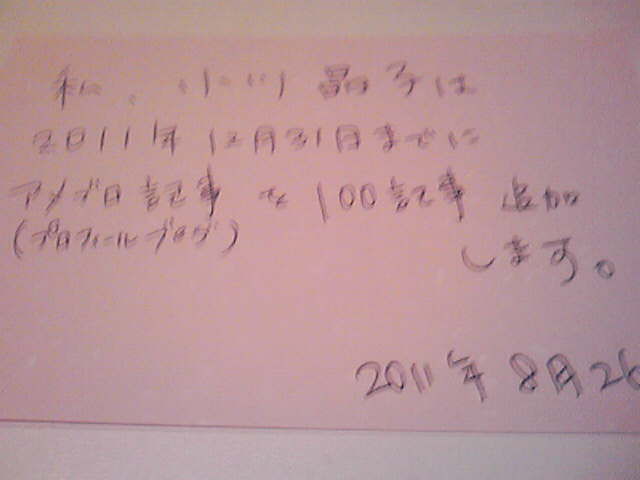 私、小川 晶子は
2011年 12月31日までに
アメブロ記事 を 100記事 追加
(プロフィールブログ)
します。
2011年 8月26